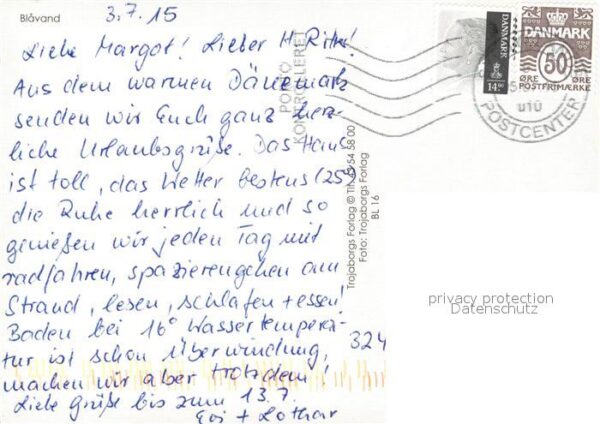 Blåvand
3.7.15
Liebe Margot! Lieber H. Ritter!
Aus dem warmen Dänemark
senden wir Euch ganz herz-
liche Urlaubsgrüße. Das Haus
ist toll, das Wetter bestens (25°)
die Ruhe herrlich und so
genießen wir jeden Tag mit
radfahren, spazierengehen am
Strand, lesen, schlafen + essen!
Baden bei 16° Wassertempera-
tur ist schon Überwindung,
machen wir aber trotzdem!
Liebe Grüße bis zum 13.7.
Evi + Lothar
324
PORTO
KONTROLLERET
Trojaborgs Forlag © Tlf.
54 58 00
Foto: Trojaborgs Forlag
BL 16
DANMARK
14.00
DANMARK
50
ØRE ØRE
POSTFRIMÆRKE
POSTCENTER
privacy protection
Datenschutz